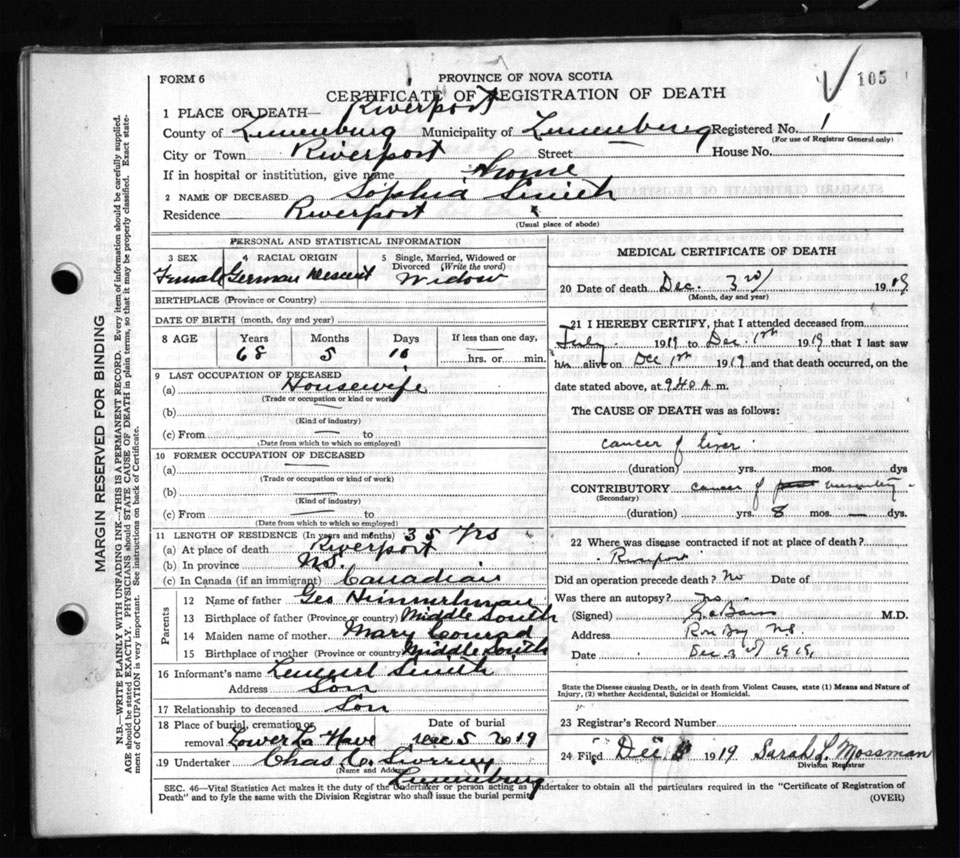 FORM 6
PROVINCE OF NOVA SCOTIA
105
CERTIFICATE OF REGISTRATION OF DEATH
1 PLACE OF DEATH— Riverport
County of Lunenburg Municipality of Lunenburg Registered No. 1
(For use of Registrar General only)
City or Town Riverport Street House No.
If in hospital or institution, give name Home
2 NAME OF DECEASED Sophia Smith
Residence Riverport
(Usual place of abode)
PERSONAL AND STATISTICAL INFORMATION
3 SEX 4 RACIAL ORIGIN 5 Single, Married, Widowed or
Divorced (Write the word)
Female German Descent Widow
BIRTHPLACE (Province or Country)
DATE OF BIRTH (month, day and year)
8 AGE Years Months Days If less than one day,
68 5 10 hrs. or min.
9 LAST OCCUPATION OF DECEASED
(a) Housewife
(Trade or occupation or kind or work)
(b)
(Kind of industry)
(c) From — to —
(Date from which to which so employed)
10 FORMER OCCUPATION OF DECEASED
(a) —
(Trade or occupation or kind of work)
(b) —
(Kind of industry)
(c) From — to
(Date from which to which so employed)
11 LENGTH OF RESIDENCE (In years and months) 35 Yrs
(a) At place of death Riverport
(b) In province N.S.
(c) In Canada (if an immigrant) Canadian
Parents
12 Name of father Geo Himmelman
13 Birthplace of father (Province or country) Middle South
14 Maiden name of mother Mary Conrad
15 Birthplace of mother (Province or country) Middle South
16 Informant's name Lemuel Smith
Address Son
17 Relationship to deceased Son
18 Place of burial, cremation or Date of burial
removal Lower La Have Dec 5 2019
19 Undertaker Chas
(Name and Address)
Lunenburg
MEDICAL CERTIFICATE OF DEATH
20 Date of death Dec. 3rd 1919
(Month, day and year)
21 I HEREBY CERTIFY, that I attended deceased from
July 1919 to Dec. 1st 1919 that I last saw
him alive on Dec 1st 1919 and that death occurred, on the
date stated above, at 9.40 A m.
The CAUSE OF DEATH was as follows:
cancer of liver
(duration) yrs. mos. dys
CONTRIBUTORY cancer of
(Secondary)
(duration) yrs. 8 mos. — dys.
22 Where was disease contracted if not at place of death?
Did an operation precede death? No Date of
Was there an autopsy? No
(Signed) M.D.
Address Rose Bay NS
Date Dec 3rd 1919
State the Disease causing Death, or in death from Violent Causes, state (1) Means and Nature of
Injury, (2) whether Accidental, Suicidal or Homicidal.
23 Registrar's Record Number
24 Filed Dec 1919 Sarah L. Mossman
Division Registrar
SEC. 46—Vital Statistics Act makes it the duty of the Undertaker or person acting as Undertaker to obtain all the particulars required in the "Certificate of Registration of
Death" and to fyle the same with the Division Registrar who shall issue the burial permit.
(OVER)
MARGIN RESERVED FOR BINDING
N.B.—WRITE PLAINLY WITH UNFADING INK—THIS IS A PERMANENT RECORD. Every item of information should be carefully supplied.
AGE should be stated EXACTLY. PHYSICIANS should STATE CAUSE OF DEATH in plain terms, so that it may be properly classified. Exact state-
ment of OCCUPATION is very important. See instructions on back of Certificate.